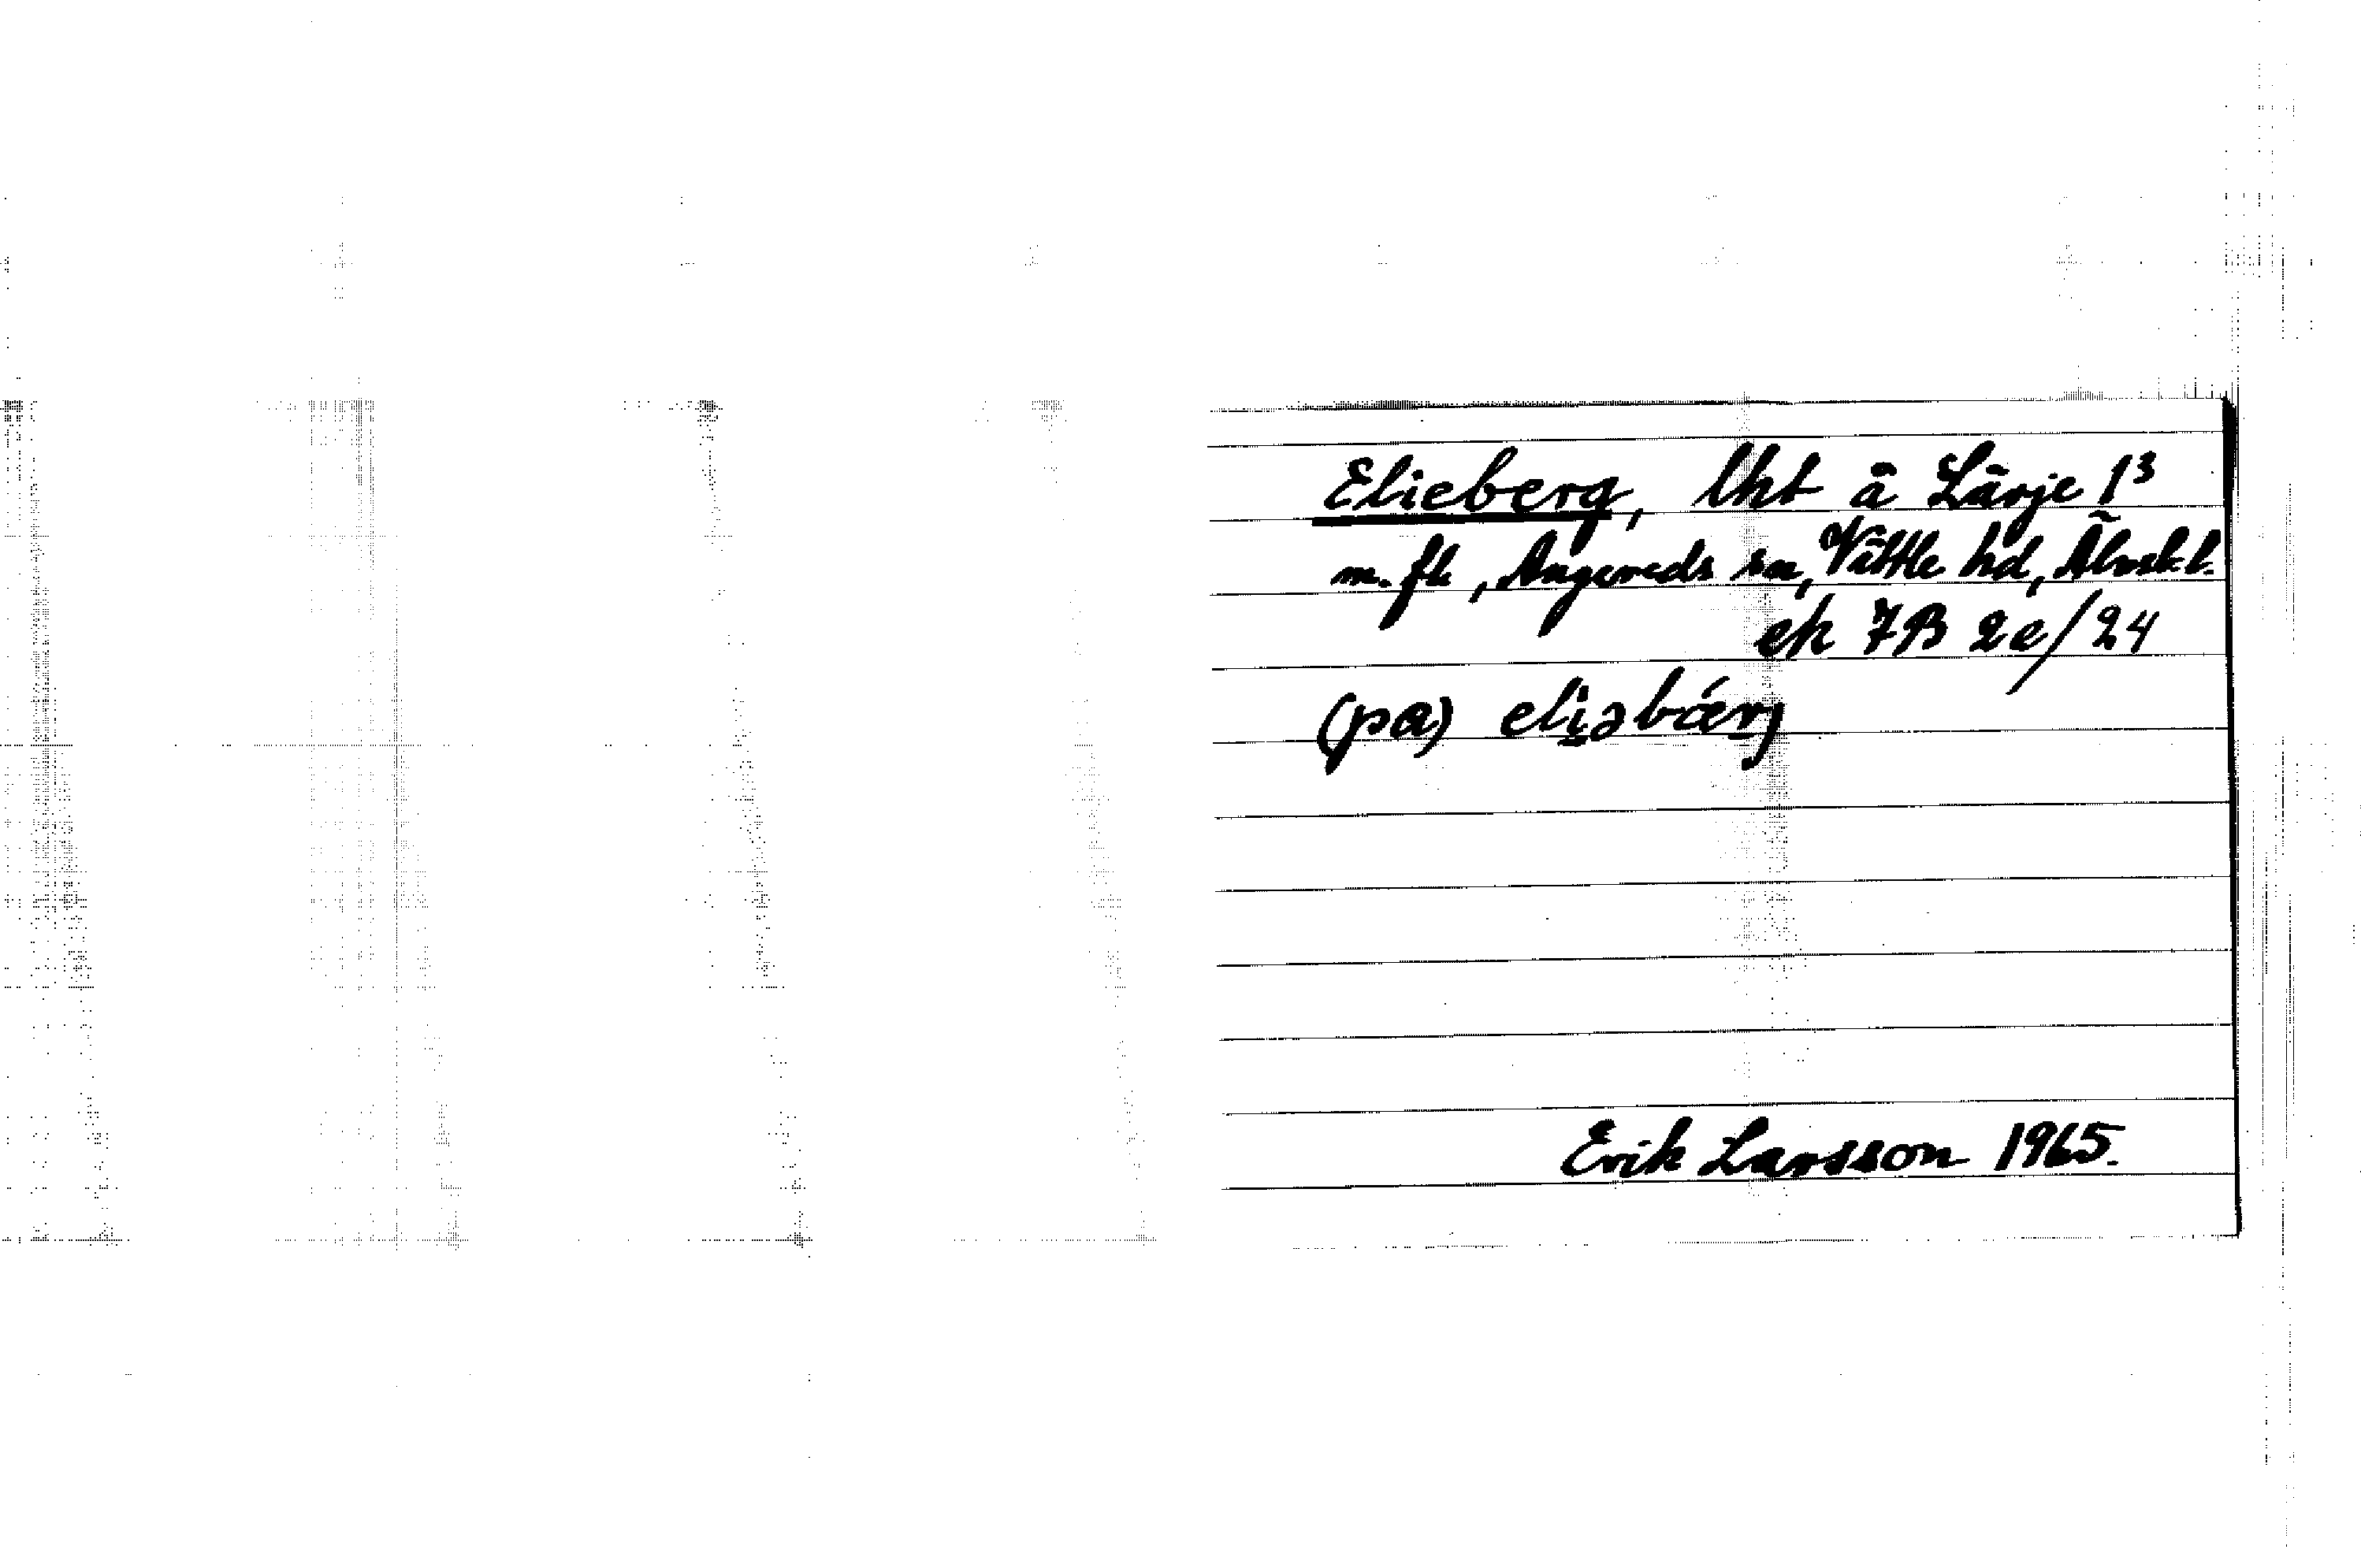 Elieberg, lht å Lärje 1³
m. fl, Angereds sn, Vättle hd, Älvsb.l.
ek 7B 2e/24
(pa) eli̱əbǽrj
Erik Larsson 1965.